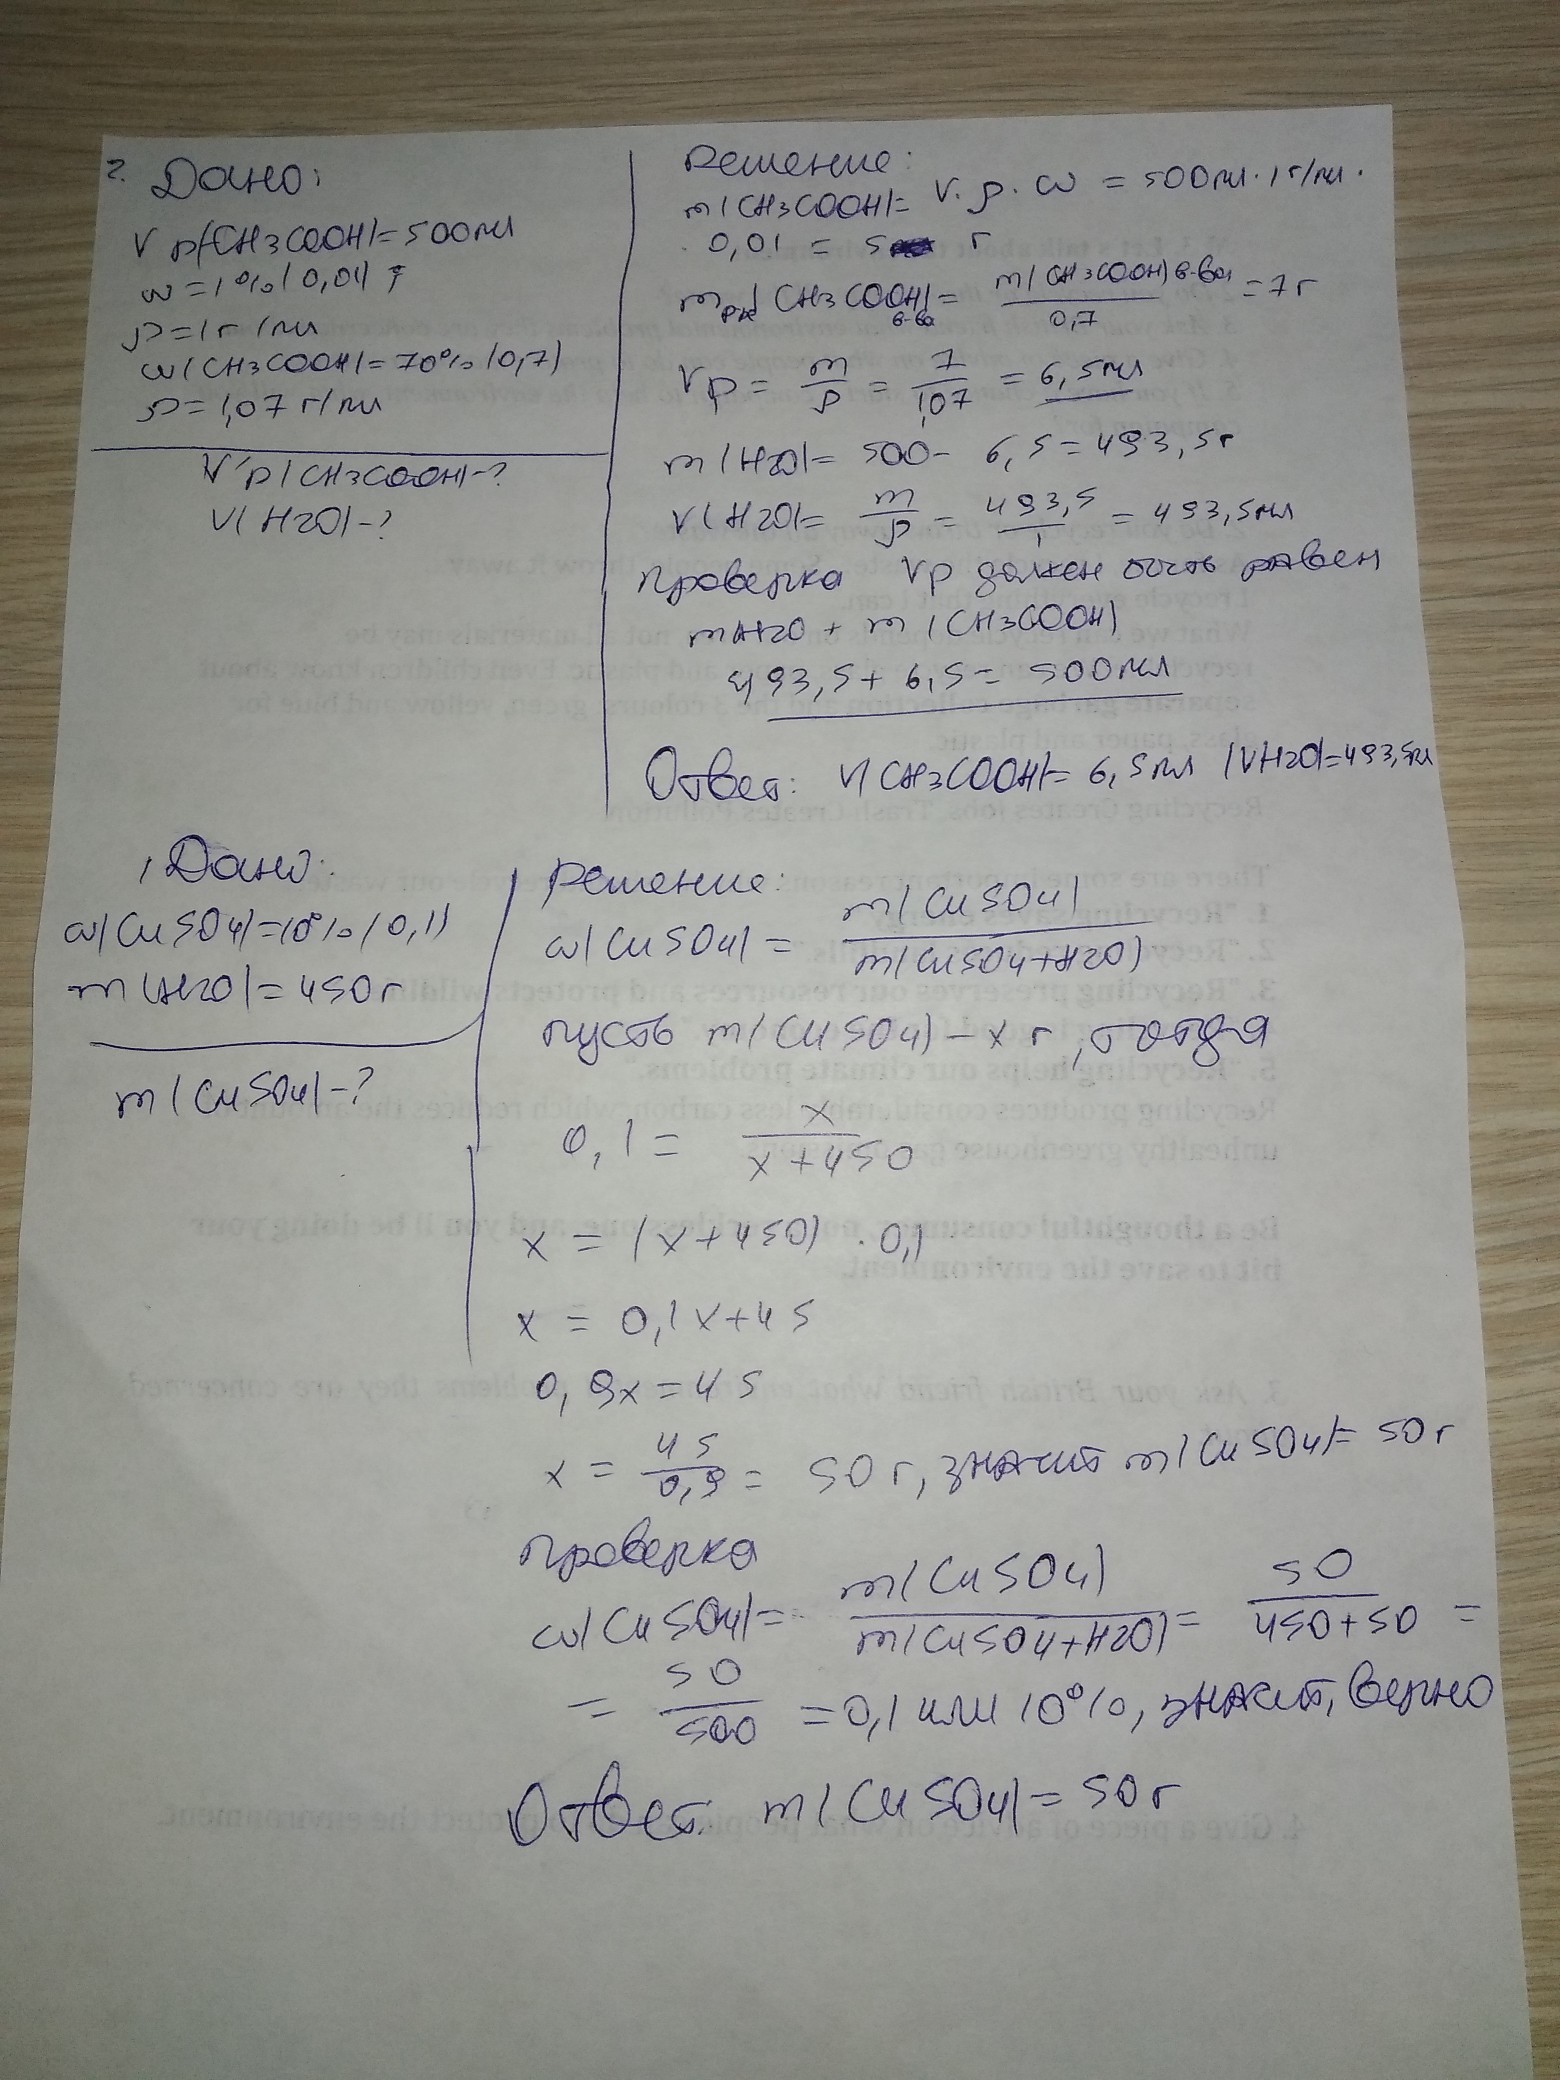 2. Дано:
V р(CH3COOH)=500мл
ω=1% (0,01)
ρ=1г/мл
ω(CH3COOH)=70% (0,7)
ρ=1,07 г/мл
V р(CH3COOH)-?
V(H2O)-?
Решение:
m(CH3COOH)= V·ρ·ω = 500мл·1г/мл·
0,01 = 5 г
m р (CH3COOH) в-ва = m(CH3COOH)в-ва / 0,7 = 7г
Vр = m/ρ = 7/1,07 = 6,5мл
m(H2O)= 500- 6,5=493,5г
V(H2O)= m/ρ = 493,5/1 = 493,5мл
Проверка Vр должен быть равен
mH2O + m(CH3COOH)
493,5+6,5= 500мл
Ответ: V(CH3COOH)= 6,5мл (VH2O)=493,5мл
1 Дано:
ω(CuSO4)=10% (0,1)
m(H2O)=450г
m(CuSO4)-?
Решение:
ω(CuSO4)= m(CuSO4) / m(CuSO4+H2O)
пусть m(CuSO4)-x г, тогда
0,1= x / x+450
x = (x+450)·0,1
x = 0,1x+45
0,9x=45
x = 45/0,9 = 50г, значит m(CuSO4)=50г
Проверка
ω(CuSO4)= m(CuSO4) / m(CuSO4+H2O) = 50 / 450+50 =
= 50/500 =0,1 или 10%, значит, верно
Ответ: m(CuSO4)=50г